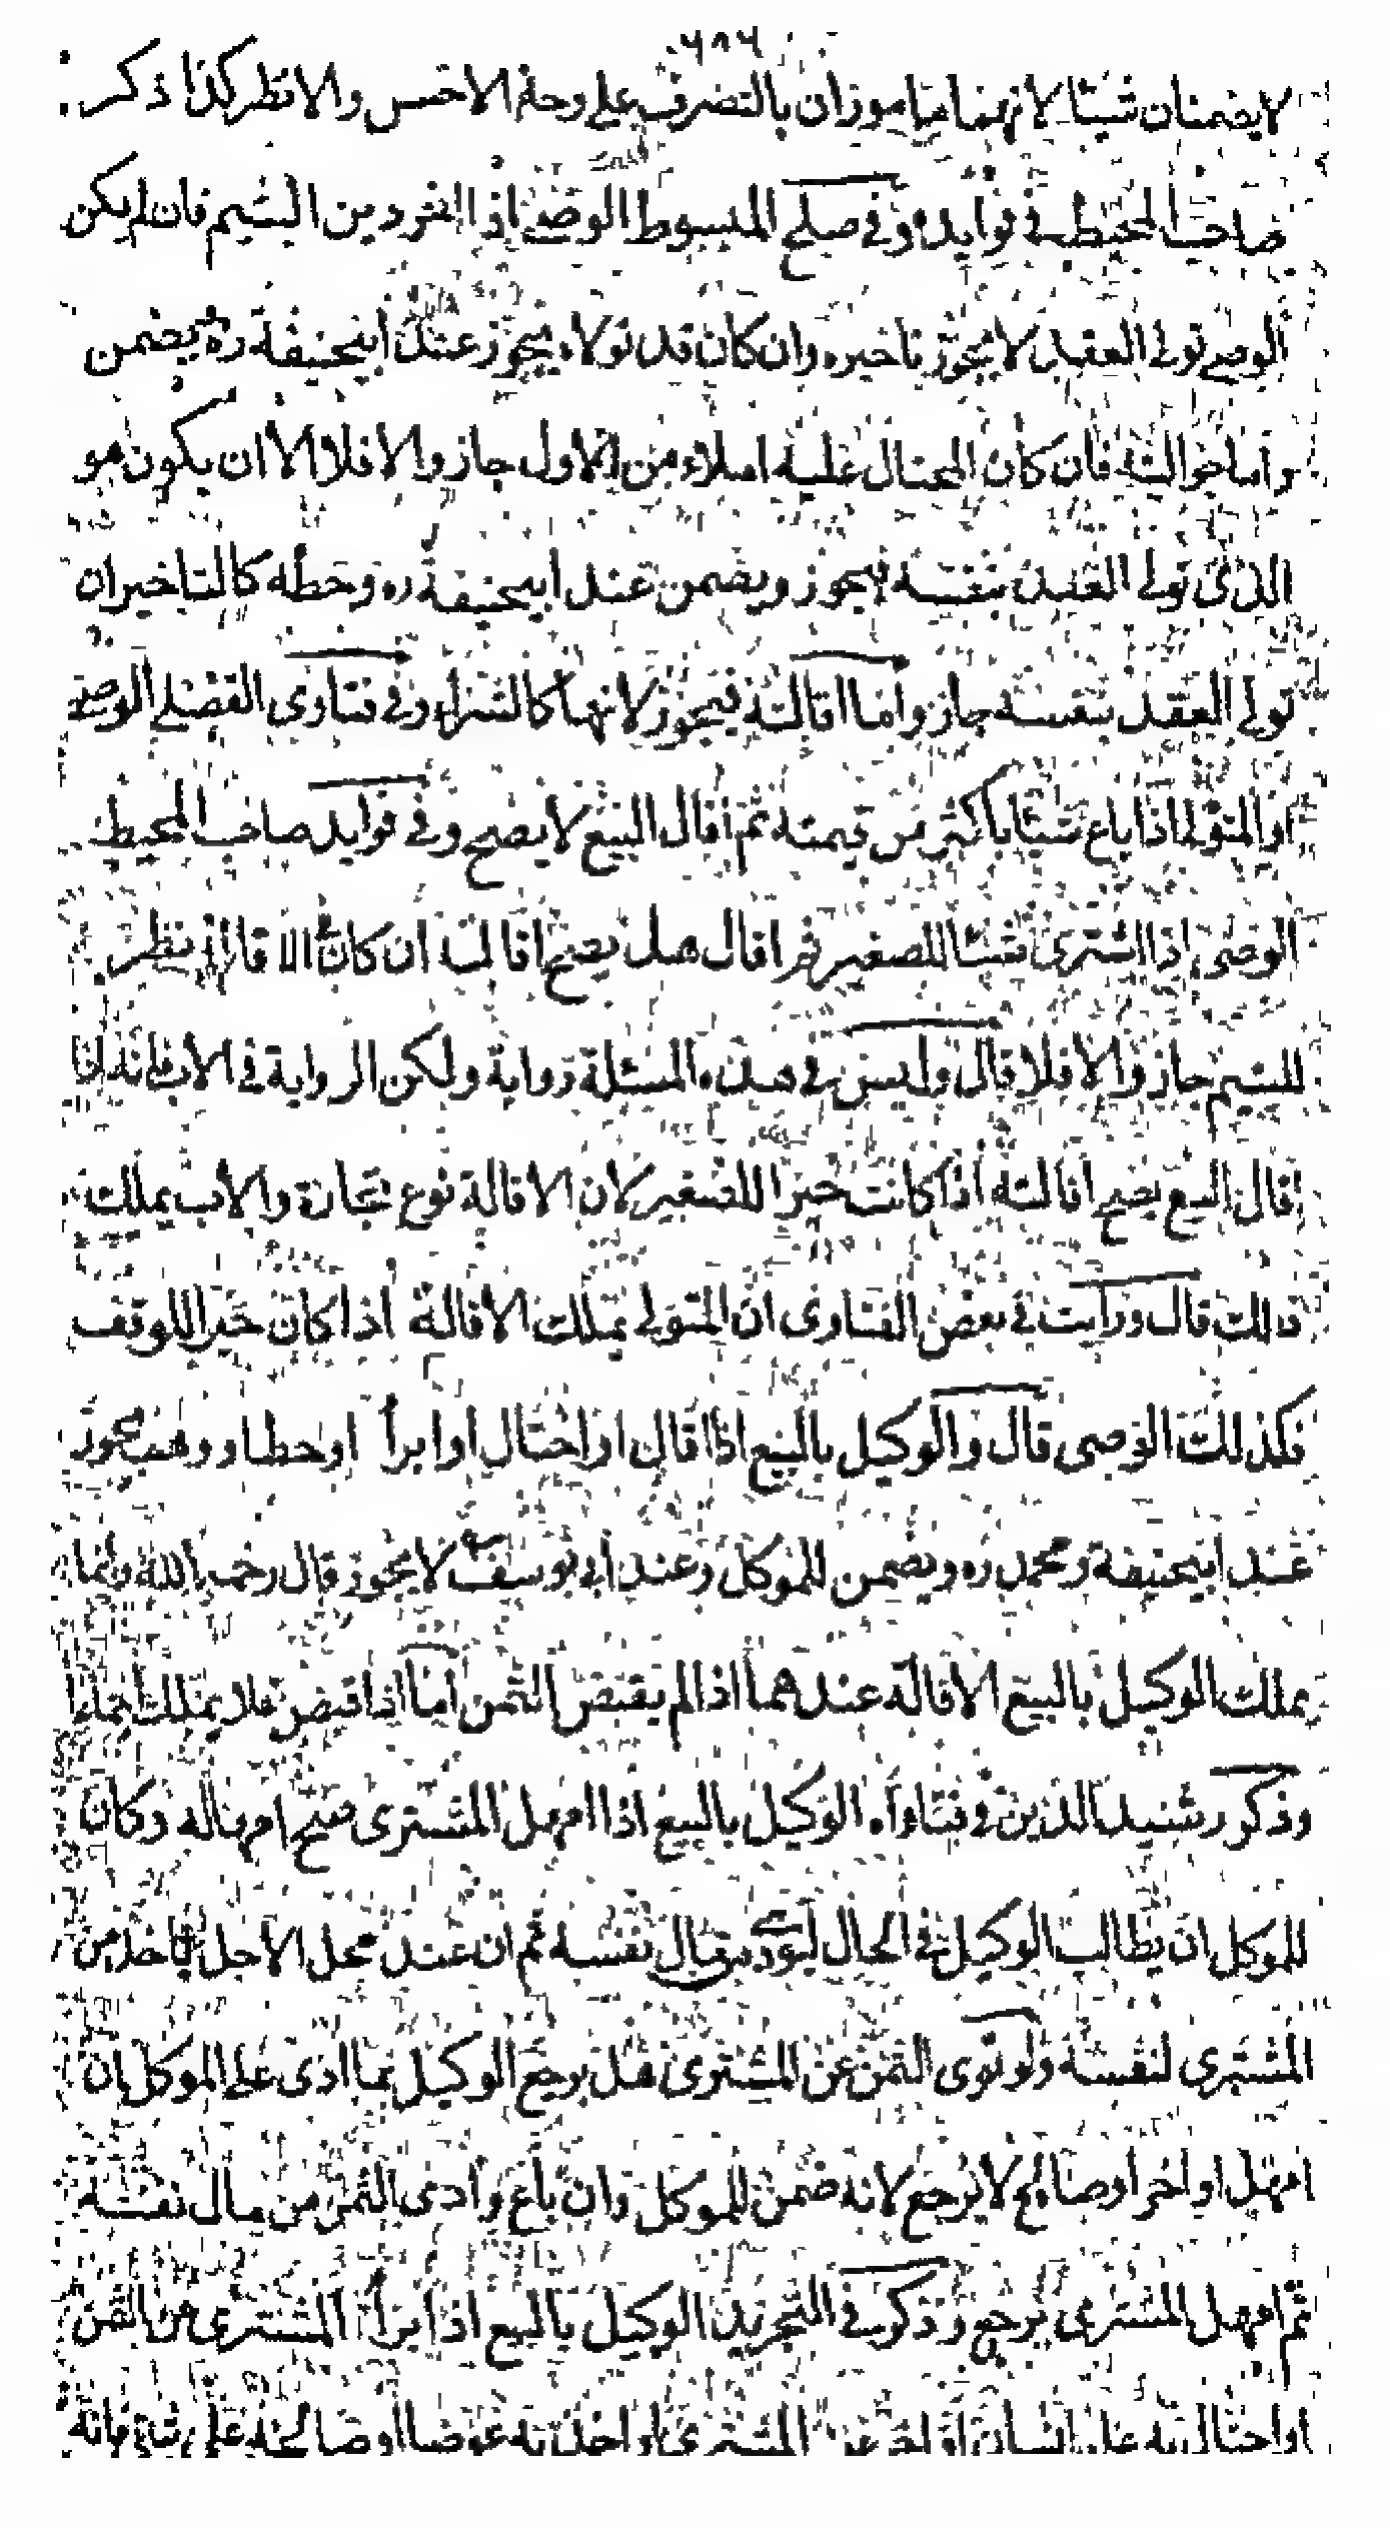 لا يضمنان شيئا لانهما مأموران بالتصرف على وجه الاحسن والانظر كذا ذكر
صاحب المحيط في فوايده وفي صلح المبسوط الوصي اذا اخر دين اليتيم فان لم يكن
الوصي تولى العقد لا يجوز تاخيره وان كان قد تولاه يجوز عند ابيحنيفة ره ويضمن
واما حوالته فان كان المحتال عليه املاء من الاول جاز والا فلا الا ان يكون هو
الذي تولى العقد بنفسه فيجوز ويضمن عند ابيحنيفة ره وحطه كالتاخير ان
تولى العقد بنفسه جاز واما اقالته فيجوز لانها كالشراء وفي فتاوى الفضلي الوصي
او المتولي اذا باع شيئا باكثر من قيمته ثم اقال البيع لا يصح وفي فوايد صاحب المحيط
الوصي اذا اشترى شيئا للصغير ثم اقال هل يصح اقالته ان كان الاقالة نظر
لليتيم جاز والا فلا قال وليس في هذه المسئلة رواية ولكن الرواية في الاب فانه اذا
اقال البيع يصح اقالته اذا كانت خيرا للصغير لان الاقالة نوع تجارة والاب يملك
ذلك قال ورأيت في بعض الفتاوى ان المتولي يملك الاقالة اذا كان خيرا للوقف
فكذلك الوصي قال والوكيل بالبيع اذا اقال او احتال او ابرأ او حط او وهب يجوز
عند ابيحنيفة ومحمد ره ويضمن للموكل وعند ابي يوسف لا يجوز قال رحمه الله وانما
يملك الوكيل بالبيع الاقالة عندهما اذا لم يقبض الثمن اما اذا قبض فلا يملك اجماعا
وذكر رشيد الدين في فتاواه الوكيل بالبيع اذا امهل المشترى صح امهاله وكان
للموكل ان يطالب الوكيل في الحال ليؤدي من مال نفسه ثم ان عند محل الاجل يأخذ من
المشترى لنفسه ولو توى الثمن عن المشترى هل يرجع الوكيل بما ادى على الموكل ان
امهل او اخر او صالح لا يرجع لانه ضمن للموكل وان باع وادى الثمن من مال نفسه
ثم امهل المشترى يرجع وذكر في التجريد الوكيل بالبيع اذا ابرأ المشترى من الثمن
او احتال به على انسان او اخر عن المشترى او اخذ به عوضا او صالحه على شئ فانه